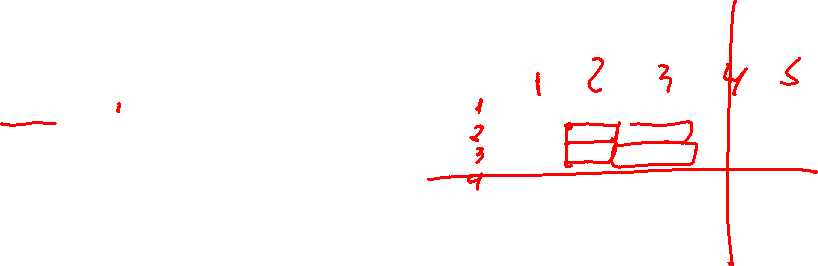 1 2 3 4 5
1
2
3
4